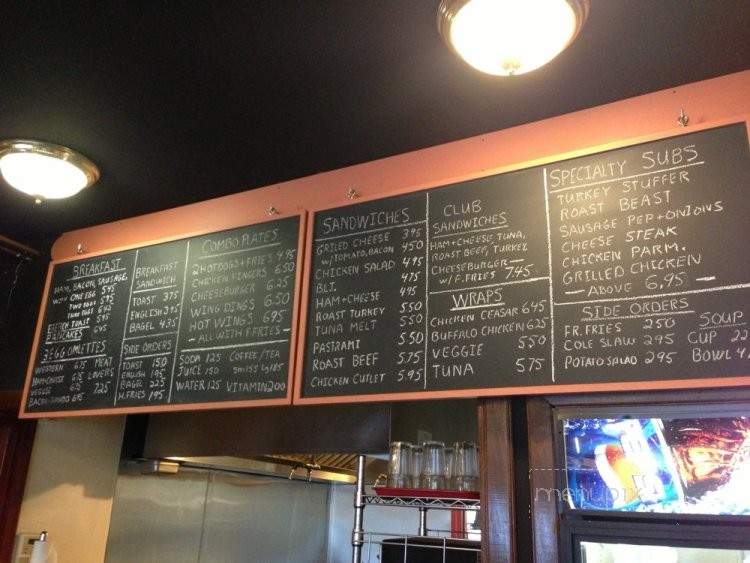 BREAKFAST
HAM, BACON, SAUSAGE,
WITH ONE EGG 545
TWO EGGS 595
THREE EGGS 645
FRENCH TOAST 595
PANCAKES 645
3 EGG OMLETTES
WESTERN 675 MEAT
HAM+CHEESE 675 LOVERS
VEGGIE 675 7.25
BREAKFAST
SANDWICH
TOAST 375
ENGLISH 395
BAGEL 4.35
SIDE ORDERS
TOAST 150
ENGLISH 195
BAGEL 225
H.FRIES 195
COMBO PLATES
2 HOTDOGS+FRIES 4.95
CHICKEN FINGERS 6.50
CHEESEBURGER 6.25
WING DINGS 6.50
HOT WINGS 695
— ALL WITH F.FRIES —
SODA 125 COFFEE/TEA
JUICE 150
WATER 125 VITAMIN 200
SANDWICHES
GRILLED CHEESE 395
W/TOMATO, BACON 450
CHICKEN SALAD 495
BLT. 475
HAM+CHEESE 495
ROAST TURKEY 550
TUNA MELT 550
PASTRAMI 550
ROAST BEEF 575
CHICKEN CUTLET 5.95
CLUB
SANDWICHES
HAM+CHEESE, TUNA,
ROAST BEEF, TURKEY
CHEESEBURGER —
W/ F. FRIES 7.45
WRAPS
CHICKEN CEASAR 645
BUFFALO CHICKEN 625
VEGGIE 550
TUNA 575
SPECIALTY SUBS
TURKEY STUFFER
ROAST BEAST
SAUSAGE PEP+ONIONS
CHEESE STEAK
CHICKEN PARM.
GRILLED CHICKEN
— ABOVE 6.95 —
SIDE ORDERS
FR. FRIES 250
COLE SLAW 295
POTATO SALAD 295
SOUP
CUP
BOWL
menupix